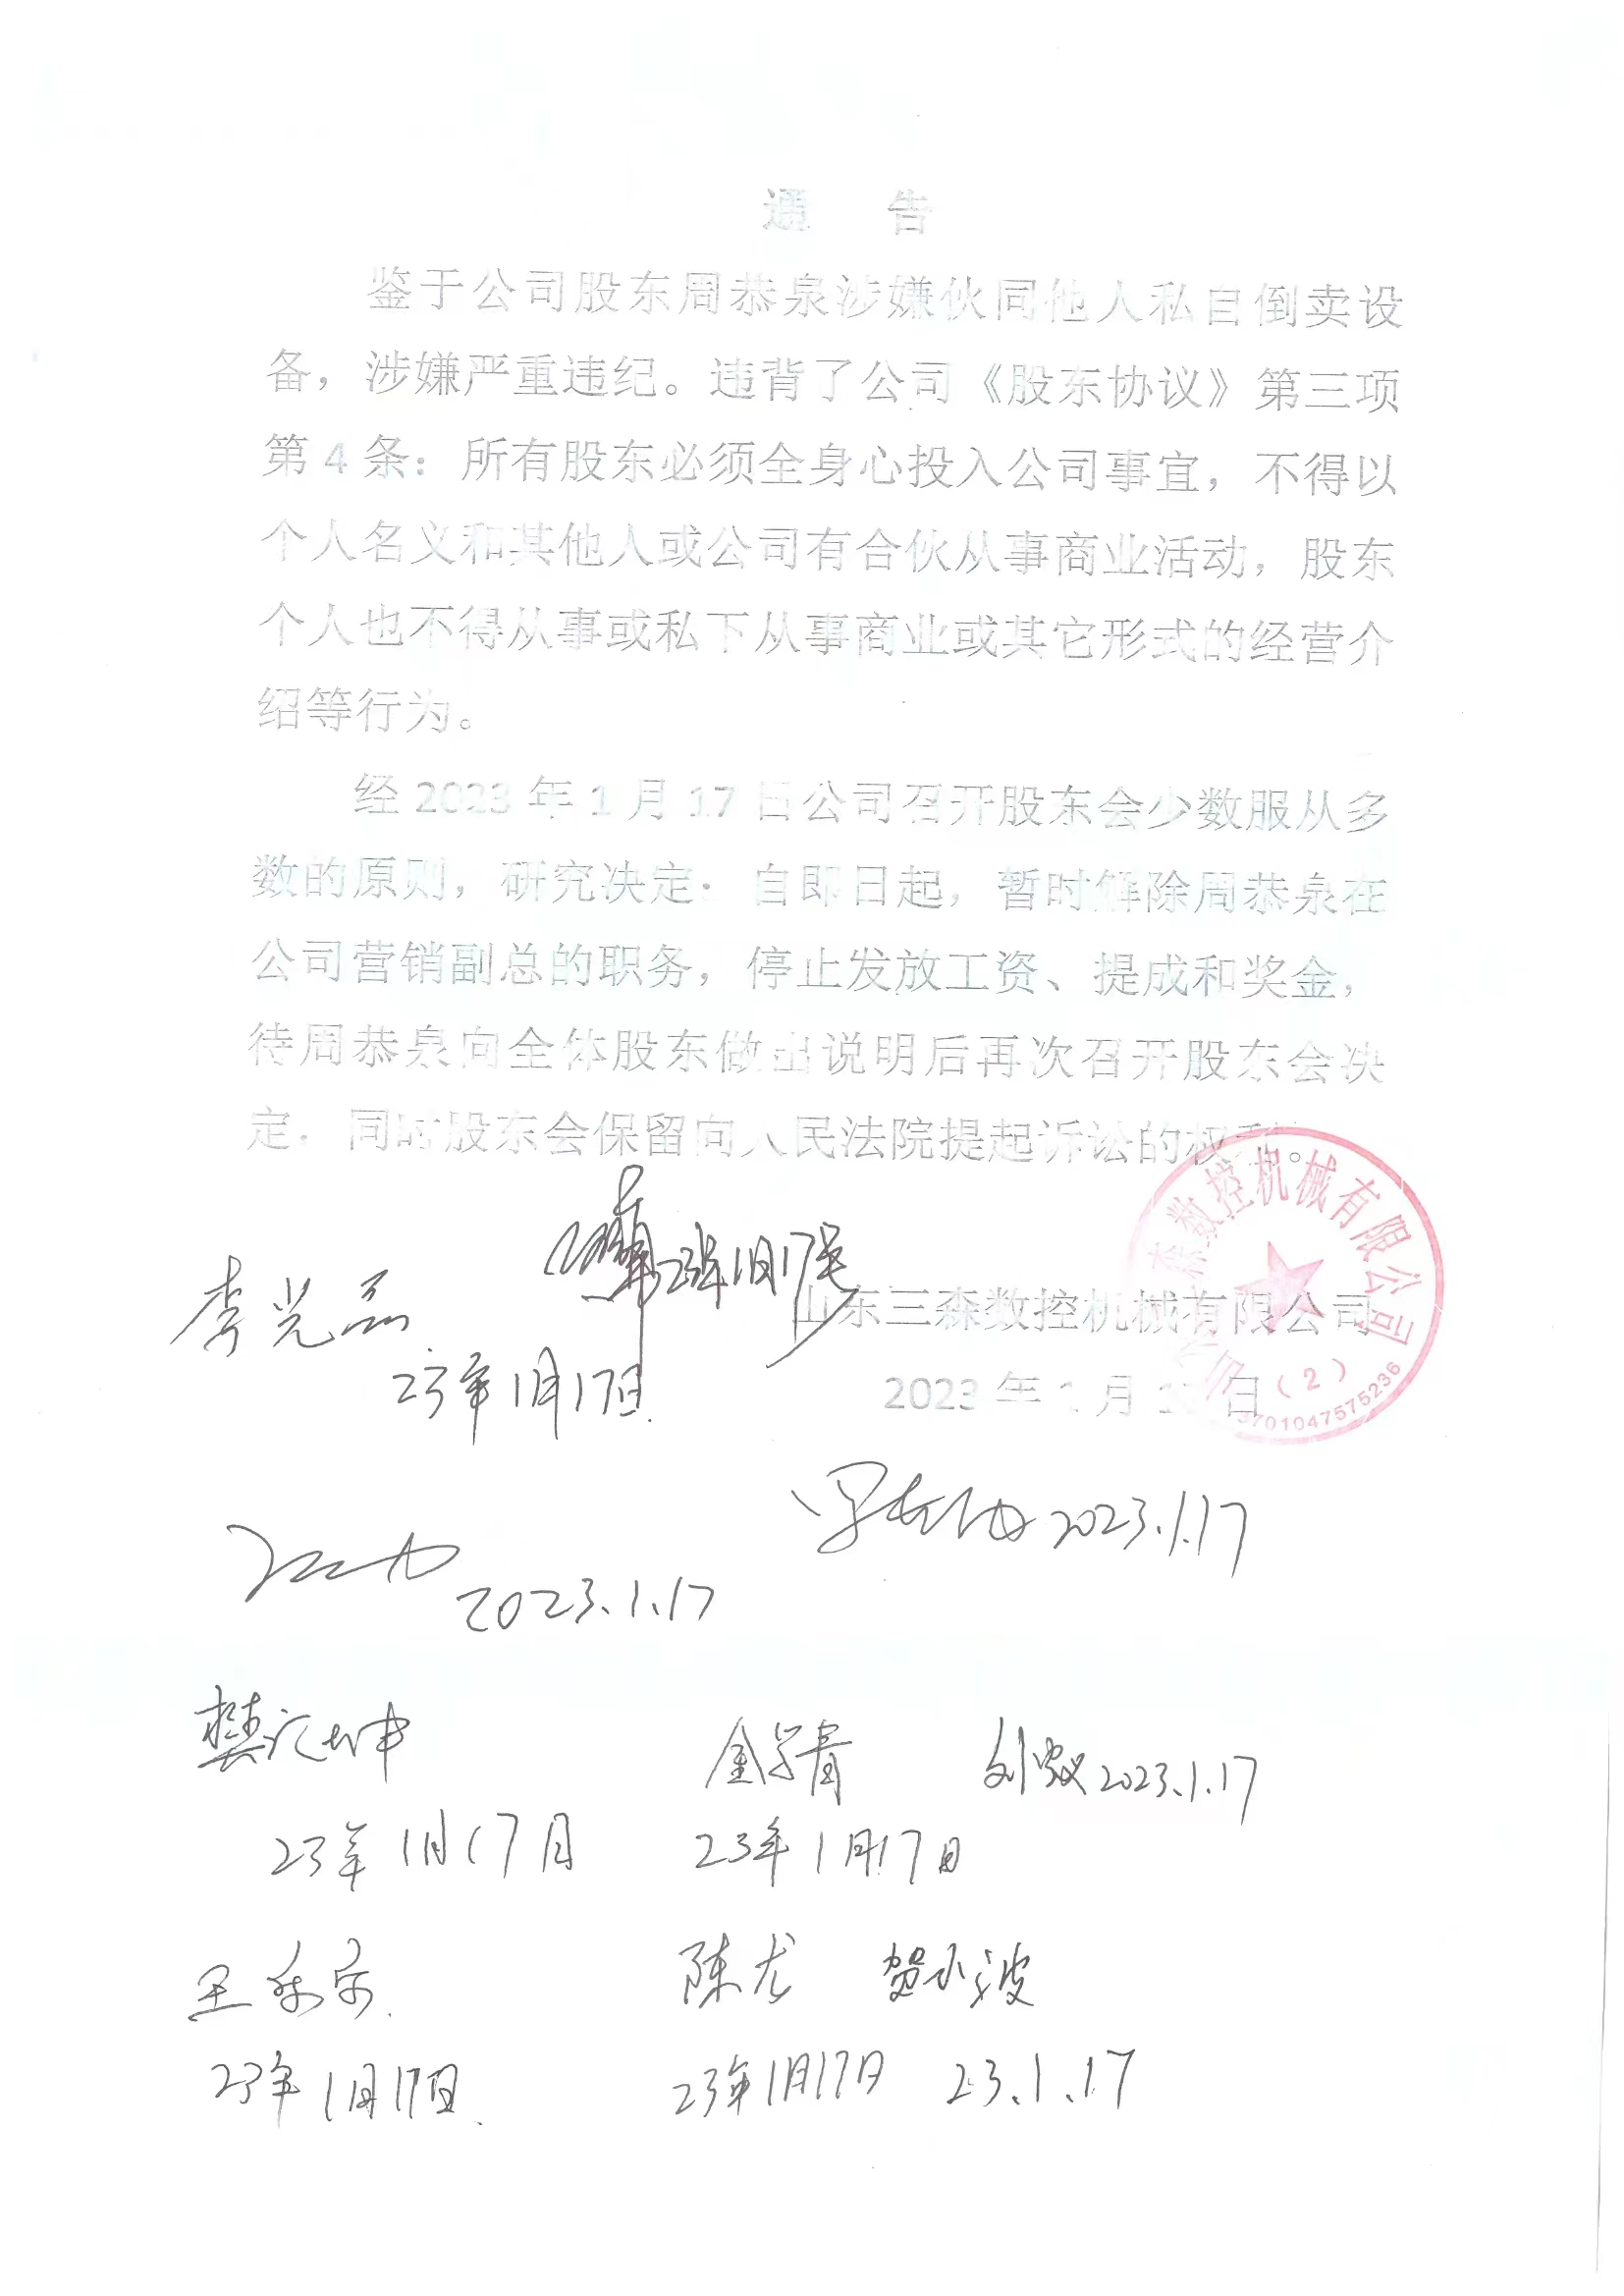 通 告
鉴于公司股东周恭泉涉嫌伙同他人私自倒卖设
备，涉嫌严重违纪。违背了公司《股东协议》第三项
第4条：所有股东必须全身心投入公司事宜，不得以
个人名义和其他人或公司有合伙从事商业活动，股东
个人也不得从事或私下从事商业或其它形式的经营介
绍等行为。
经2023年1月17日公司召开股东会少数服从多
数的原则，研究决定：自即日起，暂时解除周恭泉在
公司营销副总的职务，停止发放工资、提成和奖金，
待周恭泉向全体股东做出说明后再次召开股东会决
定。同时股东会保留向人民法院提起诉讼的权利。
数控机械有限公司
（2）
3701047575236
23年1月17号
山东三森数控机械有限公司
李光品
23年1月17日
2023年1月17日
2023.1.17
2023.1.17
樊 坤
金学青
刘 2023.1.17
23年1月17月
23年1月17日
王
陈龙
贺小波
23年1月17日
23年1月17日
23.1.17